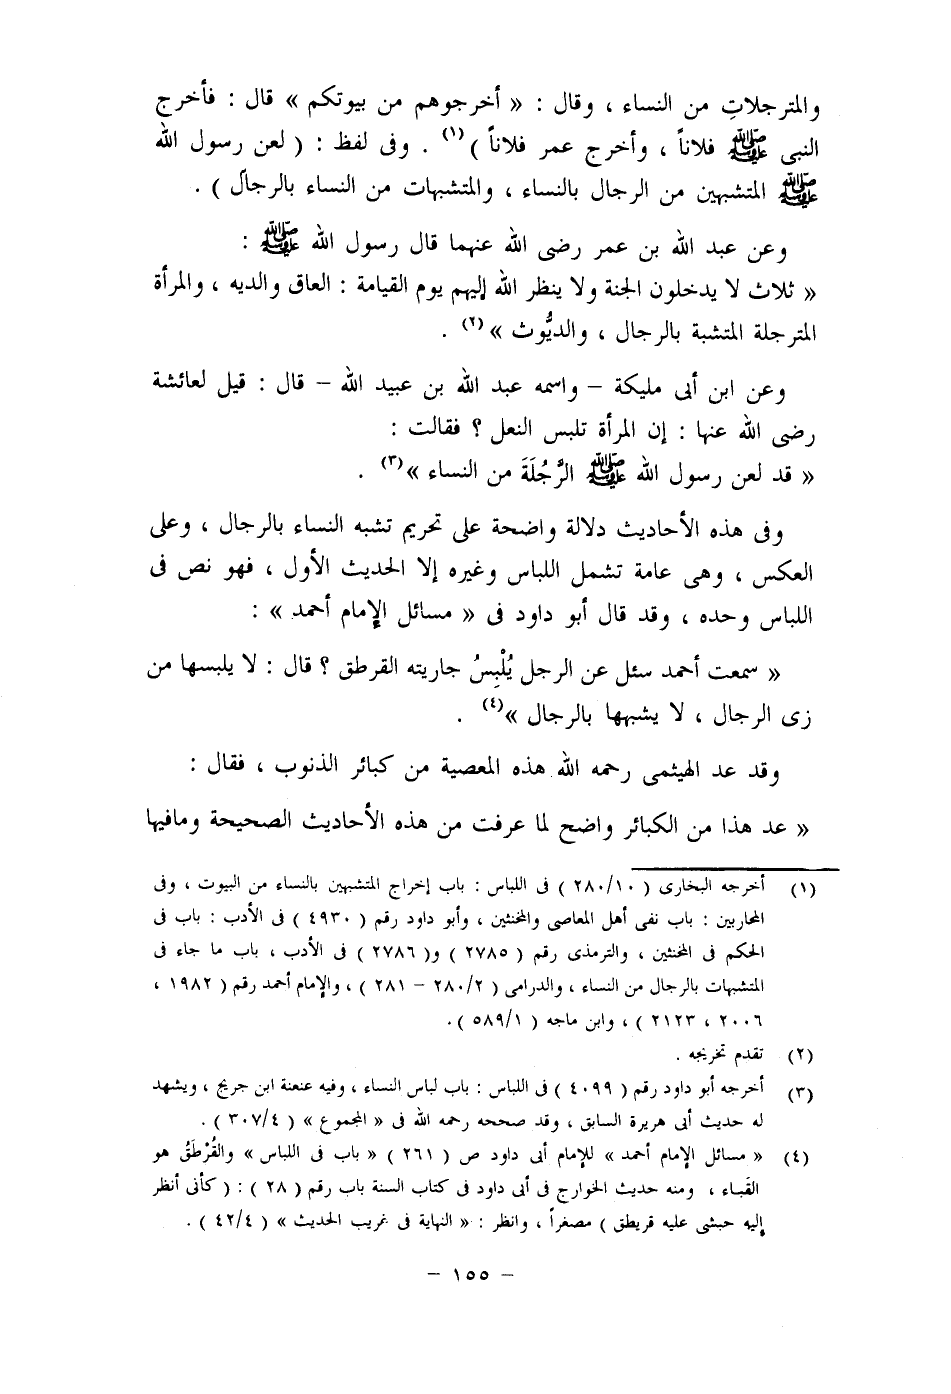 والمترجلاتِ من النساء ، وقال : « أخرجوهم من بيوتكم » قال : فأخرج
النبى ﷺ فلاناً ، وأخرج عمر فلاناً )(١) . وفى لفظ : ( لعن رسول الله
ﷺ المتشبهين من الرجال بالنساء ، والمتشبهات من النساء بالرجال ) .
وعن عبد الله بن عمر رضى الله عنهما قال رسول الله ﷺ :
« ثلاث لا يدخلون الجنة ولا ينظر الله إليهم يوم القيامة : العاق والديه ، والمرأة
المترجلة المتشبة بالرجال ، والديُّوث »(٢) .
وعن ابن أبى مليكة – واسمه عبد الله بن عبيد الله – قال : قيل لعائشة
رضى الله عنها : إن المرأة تلبس النعل ؟ فقالت :
« قد لعن رسول الله ﷺ الرَّجُلَةَ من النساء »(٣) .
وفى هذه الأحاديث دلالة واضحة على تحريم تشبه النساء بالرجال ، وعلى
العكس ، وهى عامة تشمل اللباس وغيره إلا الحديث الأول ، فهو نص فى
اللباس وحده ، وقد قال أبو داود فى « مسائل الإمام أحمد » :
« سمعت أحمد سئل عن الرجل يُلْبِسُ جاريته القرطق ؟ قال : لا يلبسها من
زى الرجال ، لا يشبهها بالرجال »(٤) .
وقد عد الهيثمى رحمه الله هذه المعصية من كبائر الذنوب ، فقال :
« عد هذا من الكبائر واضح لما عرفت من هذه الأحاديث الصحيحة ومافيها
(١) أخرجه البخارى ( ٢٨٠/١٠ ) فى اللباس : باب إخراج المتشبهين بالنساء من البيوت ، وفى
المحاربين : باب نفى أهل المعاصى والمخنثين ، وأبو داود رقم ( ٤٩٣٠ ) فى الأدب : باب فى
الحكم فى المخنثين ، والترمذى رقم ( ٢٧٨٥ ) و( ٢٧٨٦ ) فى الأدب ، باب ما جاء فى
المتشبهات بالرجال من النساء ، والدرامى ( ٢٨٠/٢ – ٢٨١ ) ، والإمام أحمد رقم ( ١٩٨٢ ،
٢٠٠٦ ، ٢١٢٣ ) ، وابن ماجه ( ٥٨٩/١ ) .
(٢) تقدم تخريجه .
(٣) أخرجه أبو داود رقم ( ٤٠٩٩ ) فى اللباس : باب لباس النساء ، وفيه عنعنة ابن جريج ، ويشهد
له حديث أبى هريرة السابق ، وقد صححه رحمه الله فى « المجموع » ( ٣٠٧/٤ ) .
(٤) « مسائل الإمام أحمد » للإمام أبى داود ص ( ٢٦١ ) « باب فى اللباس » والقُرْطَقُ هو
القَباء ، ومنه حديث الخوارج فى أبى داود فى كتاب السنة باب رقم ( ٢٨ ) : ( كأنى أنظر
إليه حبشى عليه قريطق ) مصغراً ، وانظر : « النهاية فى غريب الحديث » ( ٤٢/٤ ) .
– ١٥٥ –